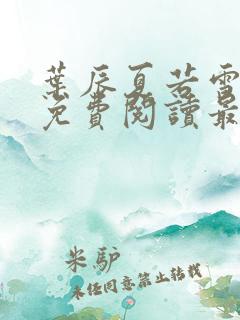 葉辰夏若雪
免費閱讀最
米驴
未经同意禁止转载